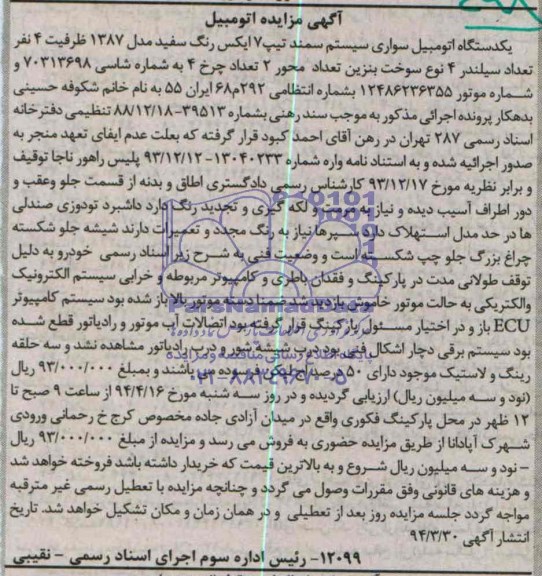 آگهی مزایده اتومبیل
یکدستگاه اتومبیل سواری سیستم سمند تیپ۷ ایکس رنگ سفید مدل ۱۳۸۷ ظرفیت ۴ نفر
تعداد سیلندر ۴ نوع سوخت بنزین تعداد محور ۲ تعداد چرخ ۴ به شماره شاسی ۷۰۳۱۳۶۹۸ و
شماره موتور ۱۲۴۸۶۲۳۶۳۵۵ بشماره انتظامی ۲۹۲م۶۸ ایران ۵۵ به نام خانم شکوفه حسینی
بدهکار پرونده اجرائی مذکور به موجب سند رهنی بشماره ۳۹۵۱۳-۸۸/۱۲/۱۸ تنظیمی دفترخانه
اسناد رسمی ۲۸۷ تهران در رهن آقای احمد کبود قرار گرفته که بعلت عدم ایفای تعهد منجر به
صدور اجرائیه شده و به استناد نامه وارده شماره ۱۳۰۴۰۲۳۳-۹۳/۱۲/۱۲ پلیس راهور ناجا توقیف
و برابر نظریه مورخ ۹۳/۱۲/۱۷ کارشناس رسمی دادگستری اطاق و بدنه از قسمت جلو وعقب و
دور اطراف آسیب دیده و نیاز به مرمت و لکه گیری و تجدید رنگ دارد داشبرد تودوزی صندلی
ها در حد مدل استهلاک دارد سپرها نیاز به رنگ مجدد و تعمیرات دارند شیشه جلو شکسته
چراغ بزرگ جلو چپ شکسته است و وضعیت فنی به شرح زیر اسناد رسمی خودرو به دلیل
توقف طولانی مدت در پارکینگ و فقدان باطری و کامپیوتر مربوطه و خرابی سیستم الکترونیک
والکتریکی به حالت موتور خاموش بازدید شد ضمنا دسته موتور بالا باز شده بود سیستم کامپیوتر
ECU باز و در اختیار مسئول پارکینگ قرار گرفته بود اتصالات آب موتور و رادیاتور قطع شده
بود سیستم برقی دچار اشکال فنی بود درب شیشه شور و درب رادیاتور مشاهده نشد و سه حلقه
رینگ و لاستیک موجود دارای ۵۰ درصد آج لیکن فرسوده می باشند و بمبلغ ۹۳/۰۰۰/۰۰۰ ریال
(نود و سه میلیون ریال) ارزیابی گردیده و در روز سه شنبه مورخ ۹۴/۴/۱۶ از ساعت ۹ صبح تا
۱۲ ظهر در محل پارکینگ فکوری واقع در میدان آزادی جاده مخصوص کرج خ رحمانی ورودی
شهرک آپادانا از طریق مزایده حضوری به فروش می رسد و مزایده از مبلغ ۹۳/۰۰۰/۰۰۰ ریال
- نود و سه میلیون ریال شروع و به بالاترین قیمت که خریدار داشته باشد فروخته خواهد شد
و هزینه های قانونی وفق مقررات وصول می گردد و چنانچه مزایده با تعطیل رسمی غیر مترقبه
مواجه گردد جلسه مزایده روز بعد از تعطیلی و در همان زمان و مکان تشکیل خواهد شد. تاریخ
انتشار آگهی ۹۴/۳/۳۰
۱۲۰۹۹- رئیس اداره سوم اجرای اسناد رسمی - نقیبی
ParsNamadData
پایگاه اطلاع رسانی مناقصه و مزایده
۰۲۱-۸۸۳۴۹۶۷۰-۵